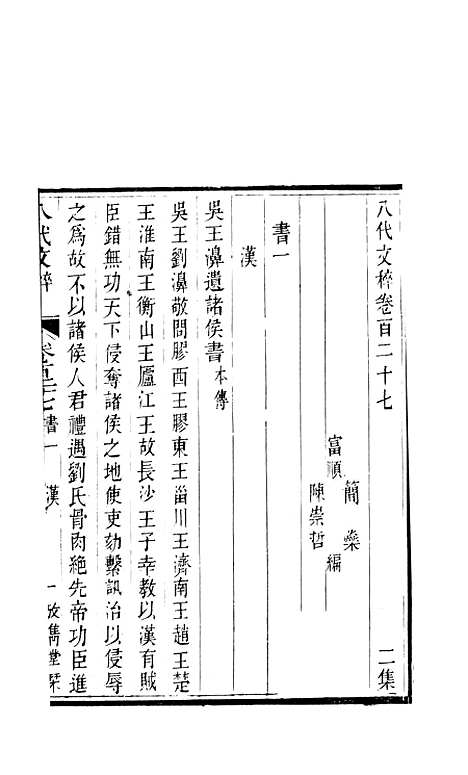 八代文粹卷百二十七 二集
富順 簡燊
陳崇哲 編
書一
漢
吳王濞遺諸侯書本傳
吳王劉濞敬問膠西王膠東王菑川王濟南王趙王楚
王淮南王衡山王廬江王故長沙王子幸教以漢有賊
臣錯無功天下侵奪諸侯之地使吏劾繫訊治以侵辱
之爲故不以諸侯人君禮遇劉氏骨肉絶先帝功臣進
八代文粹 卷百二十七 書一 漢 一 攷雋堂栞